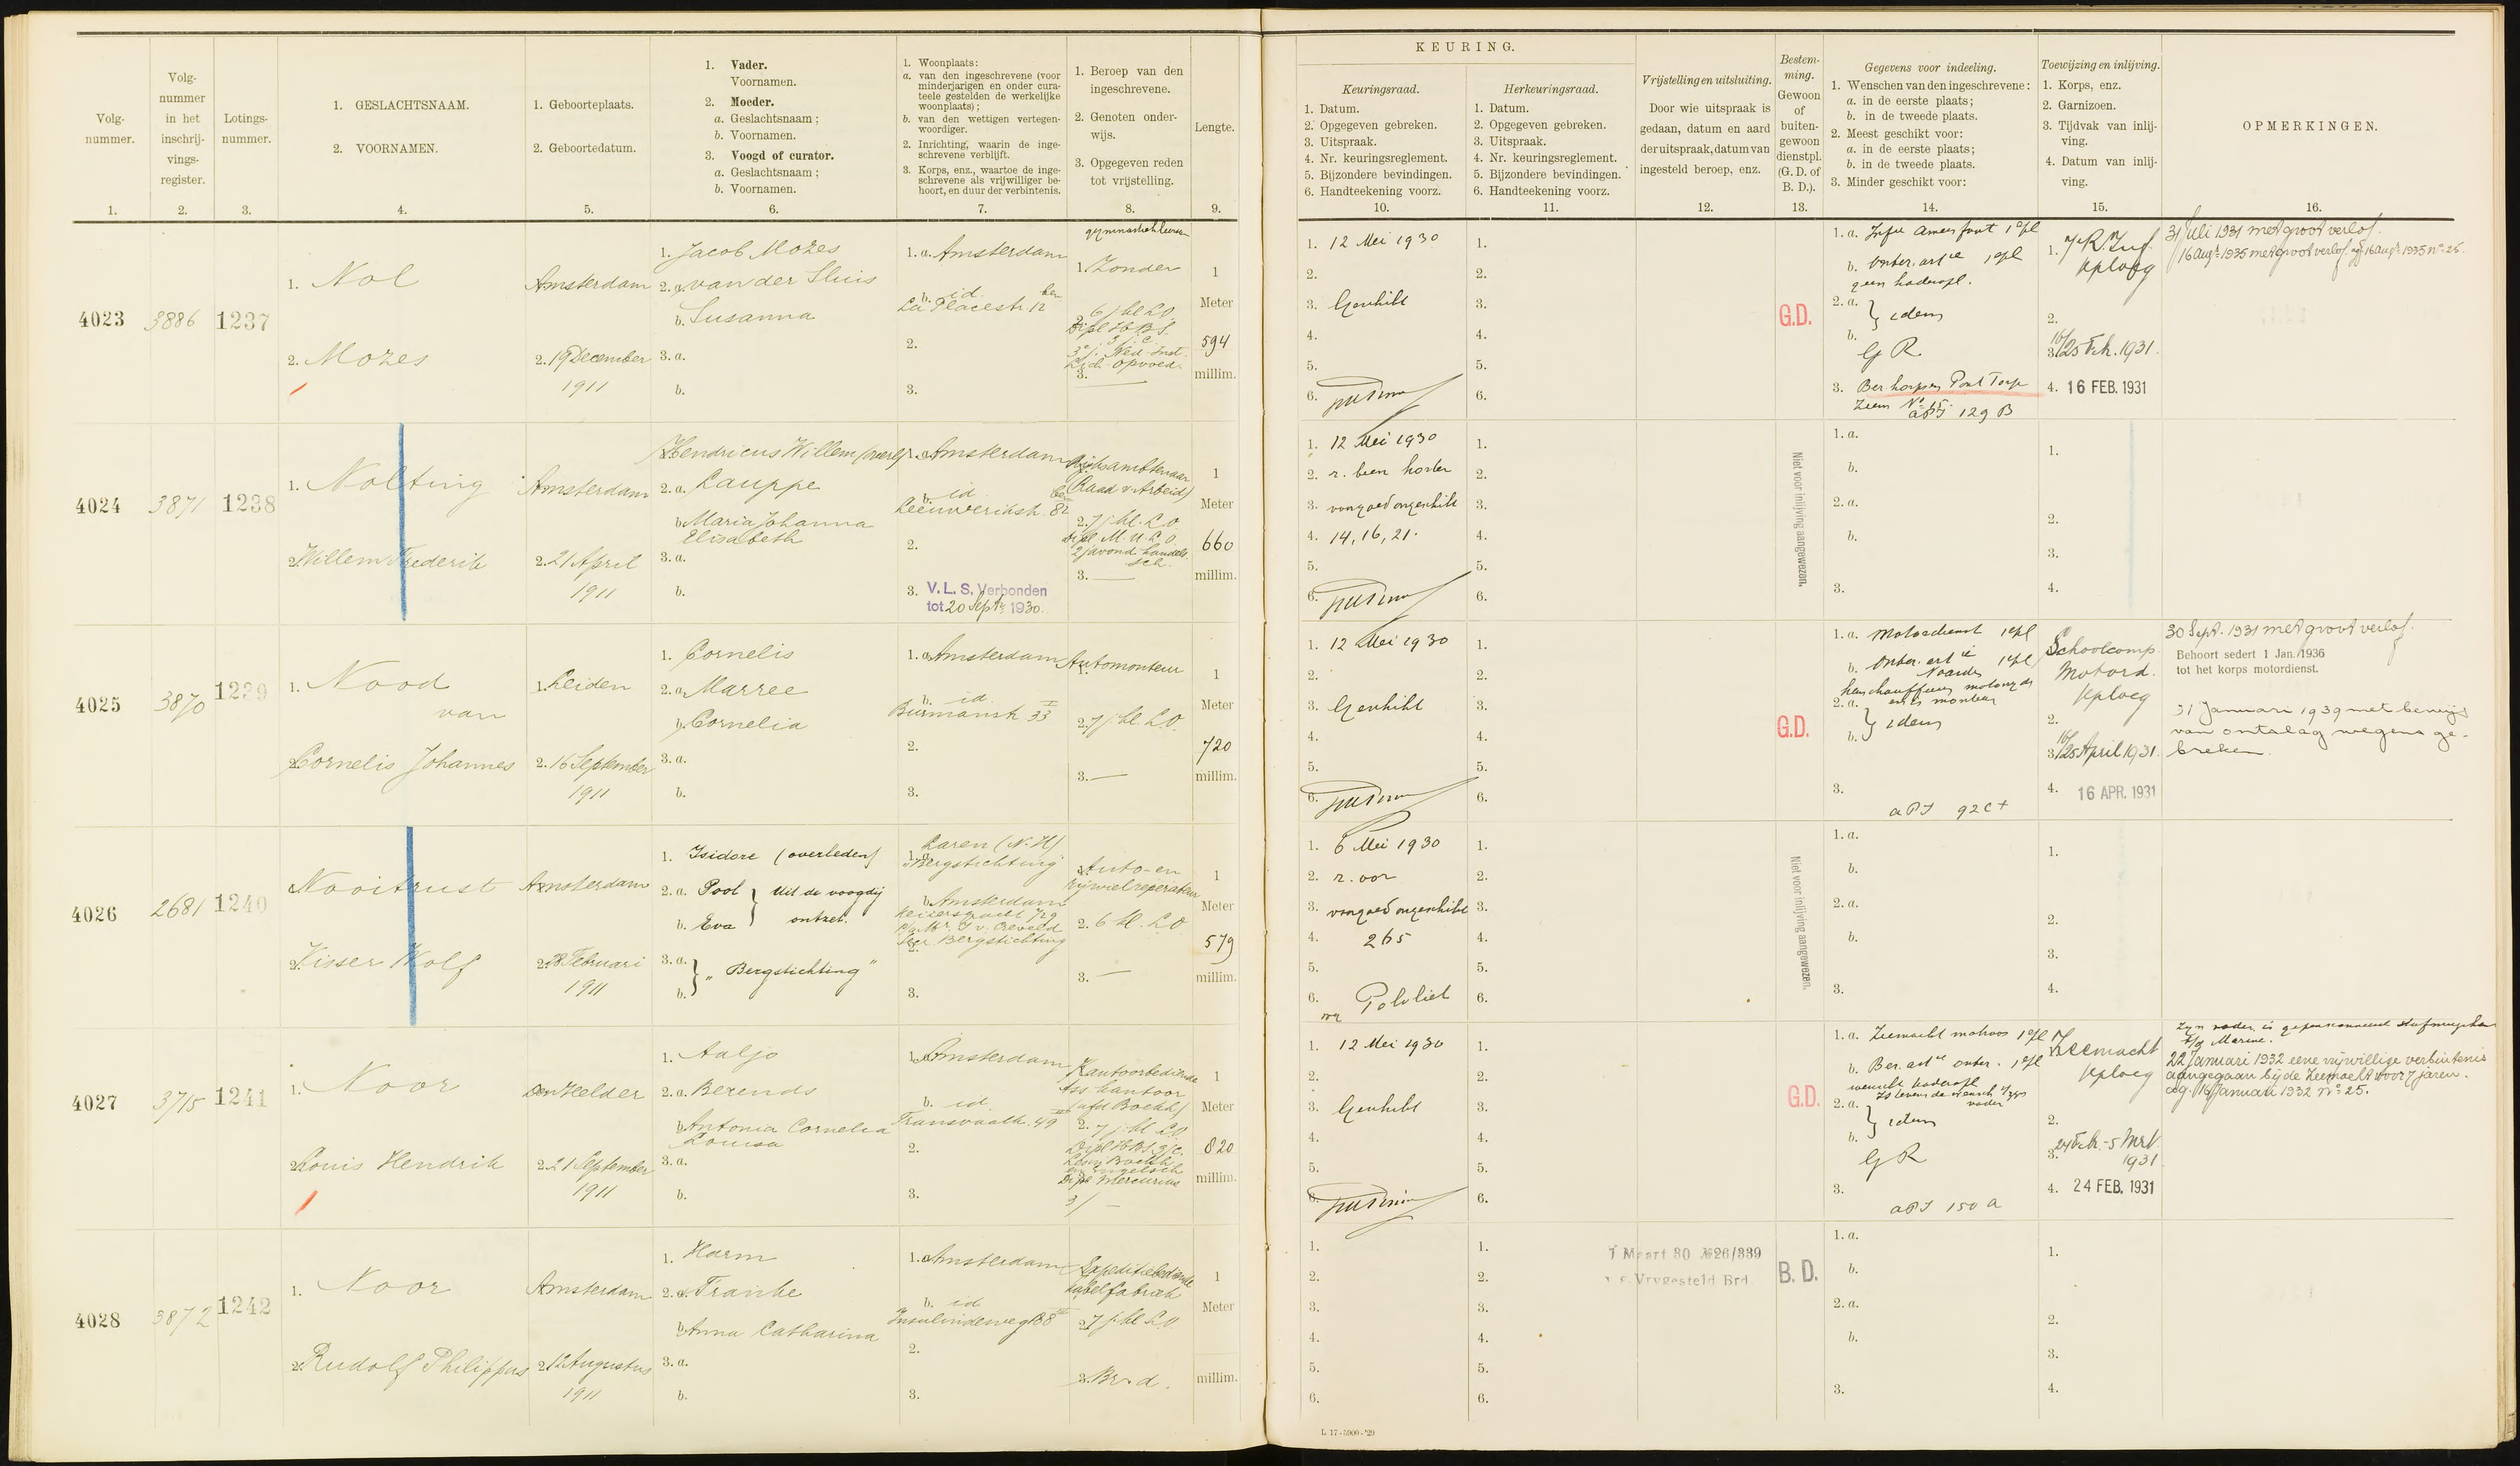 Volg-
nummer.
1.
Volg-
nummer
in het
inschrij-
vings-
register.
2.
Lotings-
nummer.
3.
1. GESLACHTSNAAM.
2. VOORNAMEN.
4.
1. Geboorteplaats.
2. Geboortedatum.
5.
1. Vader.
Voornamen.
2. Moeder.
a. Geslachtsnaam;
b. Voornamen.
3. Voogd of curator.
a. Geslachtsnaam;
b. Voornamen.
6.
1. Woonplaats:
a. van den ingeschrevene (voor
minderjarigen en onder cura-
teele gestelden de werkelijke
woonplaats);
b. van den wettigen vertegen-
woordiger.
2. Inrichting, waarin de inge-
schrevene verblijft.
3. Korps, enz., waartoe de inge-
schrevene als vrijwilliger be-
hoort, en duur der verbintenis.
7.
1. Beroep van den
ingeschrevene.
2. Genoten onder-
wijs.
3. Opgegeven reden
tot vrijstelling.
8.
Lengte.
9.
KEURING.
Keuringsraad.
1. Datum.
2. Opgegeven gebreken.
3. Uitspraak.
4. Nr. keuringsreglement.
5. Bijzondere bevindingen.
6. Handteekening voorz.
10.
Herkeuringsraad.
1. Datum.
2. Opgegeven gebreken.
3. Uitspraak.
4. Nr. keuringsreglement.
5. Bijzondere bevindingen.
6. Handteekening voorz.
11.
Vrijstelling en uitsluiting.
Door wie uitspraak is
gedaan, datum en aard
der uitspraak, datum van
ingesteld beroep, enz.
12.
Bestem-
ming.
Gewoon
of
buiten-
gewoon
dienstpl.
(G. D. of
B. D.).
13.
Gegevens voor indeeling.
1. Wenschen van den ingeschrevene:
a. in de eerste plaats;
b. in de tweede plaats.
2. Meest geschikt voor:
a. in de eerste plaats;
b. in de tweede plaats.
3. Minder geschikt voor:
14.
Toewijzing en inlijving.
1. Korps, enz.
2. Garnizoen.
3. Tijdvak van inlij-
ving.
4. Datum van inlij-
ving.
15.
OPMERKINGEN.
16.
4023
3886
1237
1. Nol
2. Mozes
Amsterdam
2. 19 December
1911
1. Jacob Mozes
2. a. van der Sluis
b. Susanna
3. a.
b.
1. a. Amsterdam
b. id.
La Placestr. 12
2.
3.
1. Zonder
2. 6 j. kl. L.O.
Dipl. H.B.S.
3 j. c.
3.
1
Meter
594
millim.
1. 12 Mei 1930
2.
3. Geschikt
4.
5.
6.
1.
2.
3.
4.
5.
6.
G.D.
1. a. Infie Amersfoort 1e pl
b. Onber. artie 1e pl
geen kaderopl.
2. a.
b. } idem
G R
3.
129 B
1. 7 R. Inf.
Kploeg
2.
3. 16/25 Feb. 1931.
4. 16 FEB. 1931
31 Juli 1931 met groot verlof.
16 Aug. 1935 met groot verlof. 16 Aug. 1935 no. 25.
4024
3871
1238
1. Nolting
2. Willem Frederik
Amsterdam
2. 21 April
1911
Hendricus Willem (overl.)
2. a. Lauppe
b. Maria Johanna
Elisabeth
3. a.
b.
1. a. Amsterdam
b. id.
Leeuwerikstr. 82
2.
3. V. L. S. Verbonden
tot 20 Sept. 1930.
Rijksambtenaar
(Raad v. Arbeid)
2. 7 j. kl. L.O.
Dipl. M.U.L.O.
2 j avond handels
sch.
3. —
1
Meter
660
millim.
1. 12 Mei 1930
2. r. been korter
3. voorgoed ongeschikt
4. 14, 16, 21.
5.
6.
1.
2.
3.
4.
5.
6.
Niet voor inlijving aangewezen.
1. a.
b.
2. a.
b.
3.
1.
2.
3.
4.
4025
3870
1239
1. Nood
van
2. Cornelis Johannes
1. Leiden
2. 16 September
1911
1. Cornelis
2. a. Marree
b. Cornelia
3. a.
b.
1. a. Amsterdam
b. id.
Burmanstr. 33 I
2.
3.
Automonteur
2. 7 j. kl. L.O.
3. —
1
Meter
720
millim.
1. 12 Mei 1930
2.
3. Geschikt
4.
5.
6.
1.
2.
3.
4.
5.
6.
G.D.
1. a. Motordienst 1e pl
b. Onber. artie 1e pl
Naarden
2. a. en is monteur
b. } idem
3.
92 C +
Schoolcomp.
Motord.
Kploeg
2.
3. 16/25 April 1931.
4. 16 APR. 1931
30 Sept. 1931 met groot verlof.
Behoort sedert 1 Jan. 1936
tot het korps motordienst.
31 Januari 1939 met bewijs
van ontslag wegens ge-
breken.
4026
2681
1240
Nooitrust
2. Visser Wolf
Amsterdam
2. 28 Februari
1911
1. Isidore (overleden)
2. a. Pool
b. Eva } Uit de voogdij
ontzet.
3. a.
b. } "Bergstichting"
Laren (N.H.)
"Bergstichting"
b. Amsterdam
Keizersgracht 729
p/a Mr. I. v. Creveld
Secr. Bergstichting
2.
3.
Auto- en
rijwielreparateur
2. 6 kl. L.O.
3. —
1
Meter
579
millim.
1. 6 Mei 1930
2. r. oor
3. voorgoed ongeschikt
4. 265
5.
6. Polvliet
1.
2.
3.
4.
5.
6.
Niet voor inlijving aangewezen.
1. a.
b.
2. a.
b.
3.
1.
2.
3.
4.
4027
3715
1241
1. Noor
2. Louis Hendrik
Den Helder
2. 21 September
1911
1. Aaljo
2. a. Berends
b. Antonia Cornelia
Louisa
3. a.
b.
1. a. Amsterdam
b. id.
Transvaalk. 49 III
2.
3.
Kantoorbediende
Ass. kantoor
(afd. Boekh.)
2. 7 j. kl. L.O.
Dipl. H.B.S. 3 j. c.
en Engelsch
Dipl. Mercurius
3/ —
1
Meter
820
millim.
1. 12 Mei 1930
2.
3. Geschikt
4.
5.
6.
1.
2.
3.
4.
5.
6.
G.D.
1. a. Zeemacht matroos 1e pl
b. Ber. artie onber. 1e pl
wenscht kaderopl
2. a. Is tevens de wensch v/zijn vader
b. } idem
G R
3.
150 A
Zeemacht
Kploeg
2.
3. 24 Feb. - 5 Mrt.
1931.
4. 24 FEB. 1931
Zijn vader is gepensionneerd
Marine.
22 Januari 1932 eene vrijwillige verbintenis
aangegaan bij de Zeemacht voor 7 jaren.
16 Januari 1932 No. 25.
4028
3872
1242
1. Noor
2. Rudolf Philippus
Amsterdam
2. 12 Augustus
1911
1. Harm
2. a. Franke
b. Anna Catharina
3. a.
b.
1. a. Amsterdam
b. id.
Insulindeweg 138 III
2.
3.
Expeditiebediende
kabelfabriek
2. 7 j. kl. L.O.
3. Br. d.
1
Meter
millim.
1.
2.
3.
4.
5.
6.
1.
2.
3.
4.
5.
6.
7 Maart 30 № 26/339
Vrygesteld Brd.
B. D.
1. a.
b.
2. a.
b.
3.
1.
2.
3.
4.
L 17 - 5900 - '29